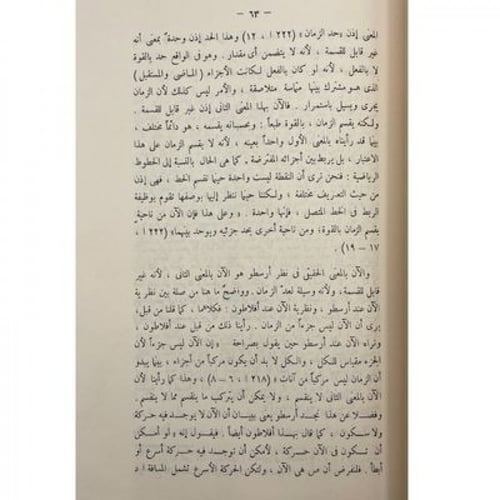 — ٦٣ —
المعنى إذن وحد الزمان » (٢٢٢ ا ، ١٢) وهذا الحد إذن وحدة ً بمعنى أنه
غير قابل للقسمة ، لأنه لا يتضمن أى مقدار . وهو فى الواقع حد بالقوة
لا بالفعل ، لأنه لو كان بالفعل لكانت الأجزاء ( الماضى والمستقبل )
الذى هو مشترك بينها مماسة متلاصقة ، والأمر ليس كذلك لأن الزمان
يجرى ويسيل باستمرار . فالآن بهذا المعنى الثانى إذن غير قابل للقسمة .
ولكنه يقسم الزمان ، بالقوة طبعاً : وبحسبانه يقسمه ، هو دائماً مختلف ،
بينما قد رأيناه بالمعنى الأول واحداً بعينه ، لأنه لا يقسم الزمان على هذا
الاعتبار ، بل يربط بين أجزائه المفترضة . كما هى الحال بالنسبة إلى الخطوط
الرياضية : فنحن نرى أن النقطة ليست واحدة حينما نقسم الخط ، فهى إذن
من حيث التعريف مختلفة ، ولكننا حينما ننظر إليها بوصفها تقوم بوظيفة
الربط فى الخط المتصل ، فإنها واحدة . « وعلى هذا فإن الآن من ناحية
يقسم الزمان بالقوة؛ ومن ناحية أخرى يحد جزئيه ويوحد بينهما» (٢٢٢ ا ،
١٧ — ١٩) .
والآن بالمعنى الحقيقى فى نظر أرسطو هو الآن بالمعنى الثانى ، لأنه غير
قابل للقسمة، ولأنه وسيلة لعدّ الزمان . وواضح ما هنا من صلة بين نظرية
الآن عند أرسطو ، ونظرية الآن عند أفلاطون : فكلاهما ، كما قلنا من قبل،
يرى أن الآن ليس جزءاً من الزمان . رأينا ذلك من قبل عند أفلاطون ،
ونراه الآن عند أرسطو حين يقول بصراحة « إن الآن ليس جزءاً لأن
الجزء مقياس للكل، والكل لا بد أن يكون مركباً من أجزاء ، بينما يبدو
أن الزمان ليس مركباً من آنات » (٢١٨ ا ، ٦ — ٨) ، وهذا كما رأينا لأن
الآن بالمعنى الثانى لا ينقسم ، ولا يمكن أن يتركب ما ينقسم مما لا ينقسم .
وفضلا عن هذا نجد أرسطو يعنى ببيان أن الآن لا توجد فيه حركة
ولا سكون ، كما قال بهذا أفلاطون أيضاً . فيقول إنه « لو أمكن
أن تكون فى الآن حركة ، لأمكن أن توجد فيه حركة أسرع أو
أبطأ . فلنفرض أن ص هى الآن ، ولتكن الحركة الأسرع تشمل المسافة ا د